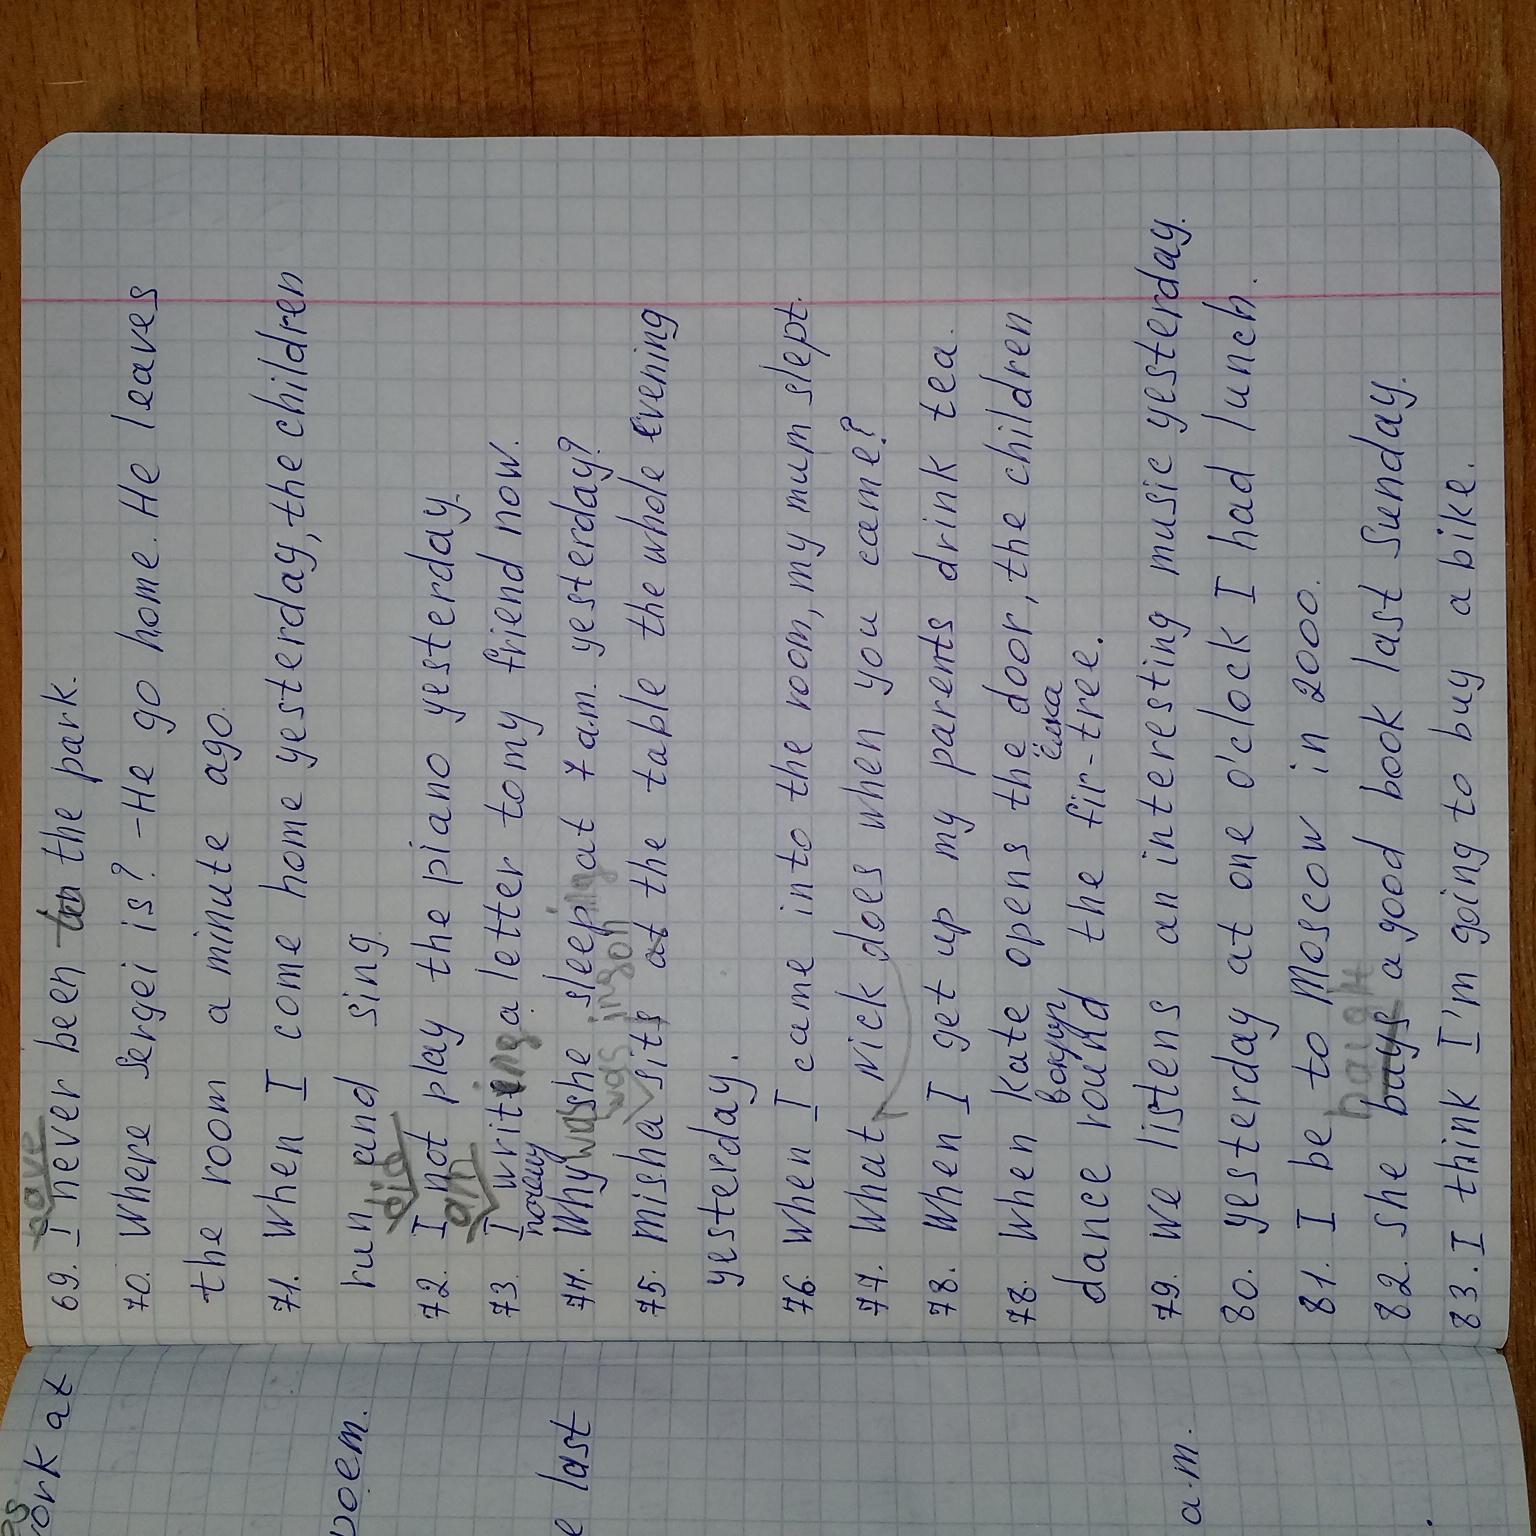 ork at
poem.
e last
a.m.
have
69. I never been to the park.
70. Where Sergei is? - He go home. He leaves
the room a minute ago.
71. When I come home yesterday, the children
run and sing
did
72. I not play the piano yesterday.
am
73. I writing a letter to my friend now.
почему
74. Why was she sleeping at 7 a.m. yesterday?
was ing on
75. Misha sits at the table the whole evening
yesterday.
76. When I came into the room, my mum slept.
77. What Nick does when you came?
78. When I get up my parents drink tea.
78. When Kate opens the door, the children
вокруг ёлка
dance round the fir-tree.
79. We listens an interesting music yesterday.
80. Yesterday at one o'clock I had lunch.
81. I be to Moscow in 2000.
82. She buys a good book last Sunday.
83. I think I'm going to buy a bike.